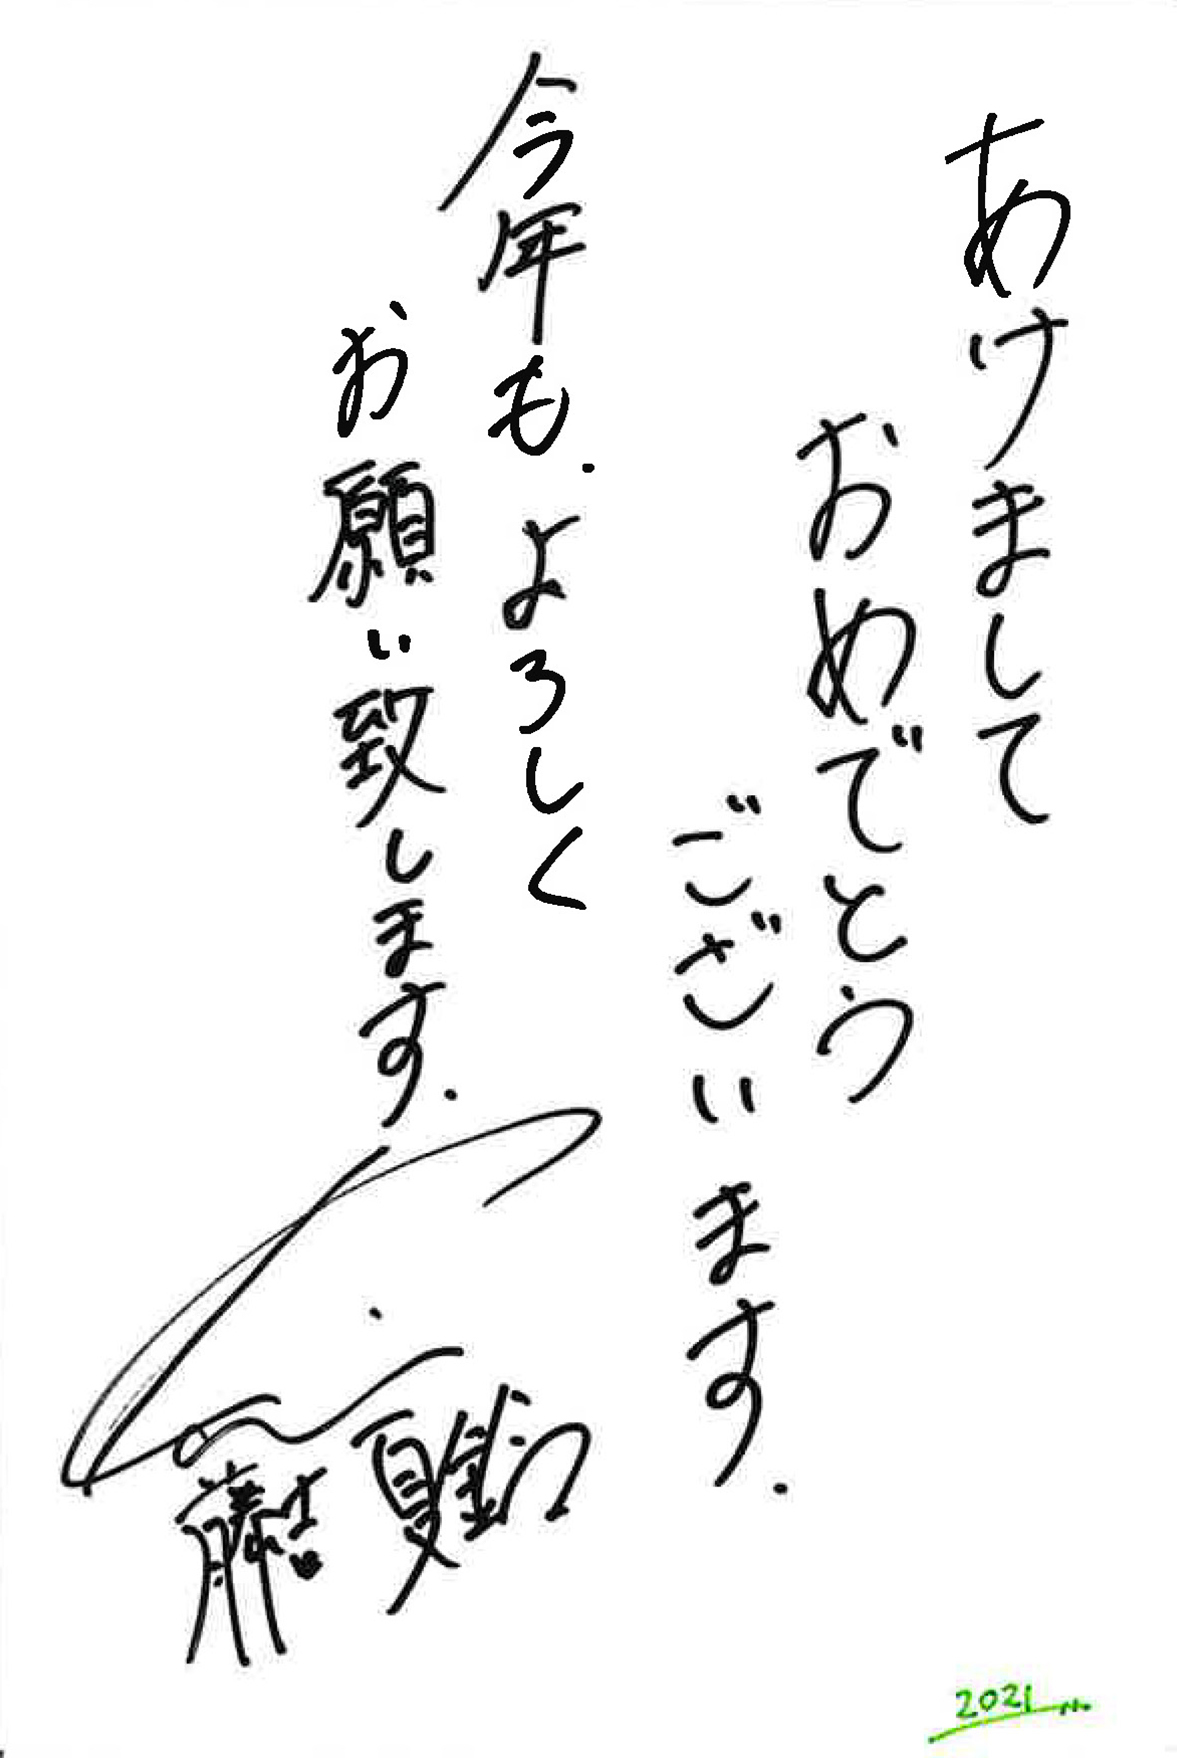 あけまして
おめでとう
ございます.
今年も.よろしく
お願い致します.
2021